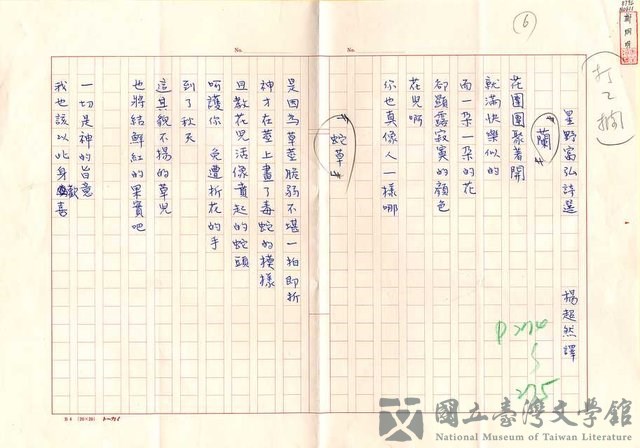 (6)
打乙摘
星野富弘詩選 楊超然譯
P274
275
蘭
花團團聚著開
就滿快樂似的
而一朵一朵的花
卻顯露寂寞的顏色
花兒啊
你也真像人一樣哪
蛇草
是因為草莖脆弱不堪一拍即折
神才在莖上畫了毒蛇的模樣
且教花兒活像賁起的蛇頭
呵護你 免遭折花的手
到了秋天
這其貌不揚的草兒
也將結鮮紅的果實吧
一切是神的旨意
我也該以此身歡喜
No.
No.
B4 (20×20) トーカイ
國立臺灣文學館
National Museum of Taiwan Literature